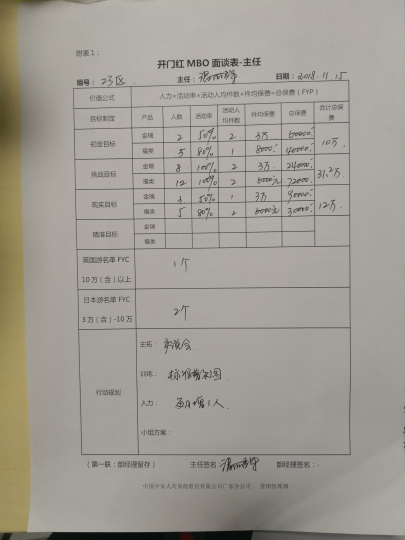 附表1：
开门红 MBO 面谈表-主任
编号： 23区 主任： 日期： 2018.11.15
价值公式 人力×活动率×活动人均件数×件均保费=总保费（FYP）
目标制定 产品 人数 活动率 活动人均件数 件均保费 总保费 合计总保费
初定目标 金瑞 2 50% 2 3万 60000 10万
福类 5 80% 1 8000 40000
挑战目标 金瑞 8 100% 2 3万 240000 31.2万
福类 12 100% 2 6000元 72000
现实目标 金瑞 3 50% 1 3万 90000 12万
福类 5 80% 2 6000元 30000
精准目标 金瑞
福类
英国游名单 FYC 10万（含）以上 1个
日本游名单 FYC 3万（含）-10万 2个
行动规划
主拓：
训练：
人力： 每月增1人
小组方案：
（第一联：部经理留存） 主任签名： 部经理签名：
中国平安人寿保险股份有限公司广东分公司 营销管理部